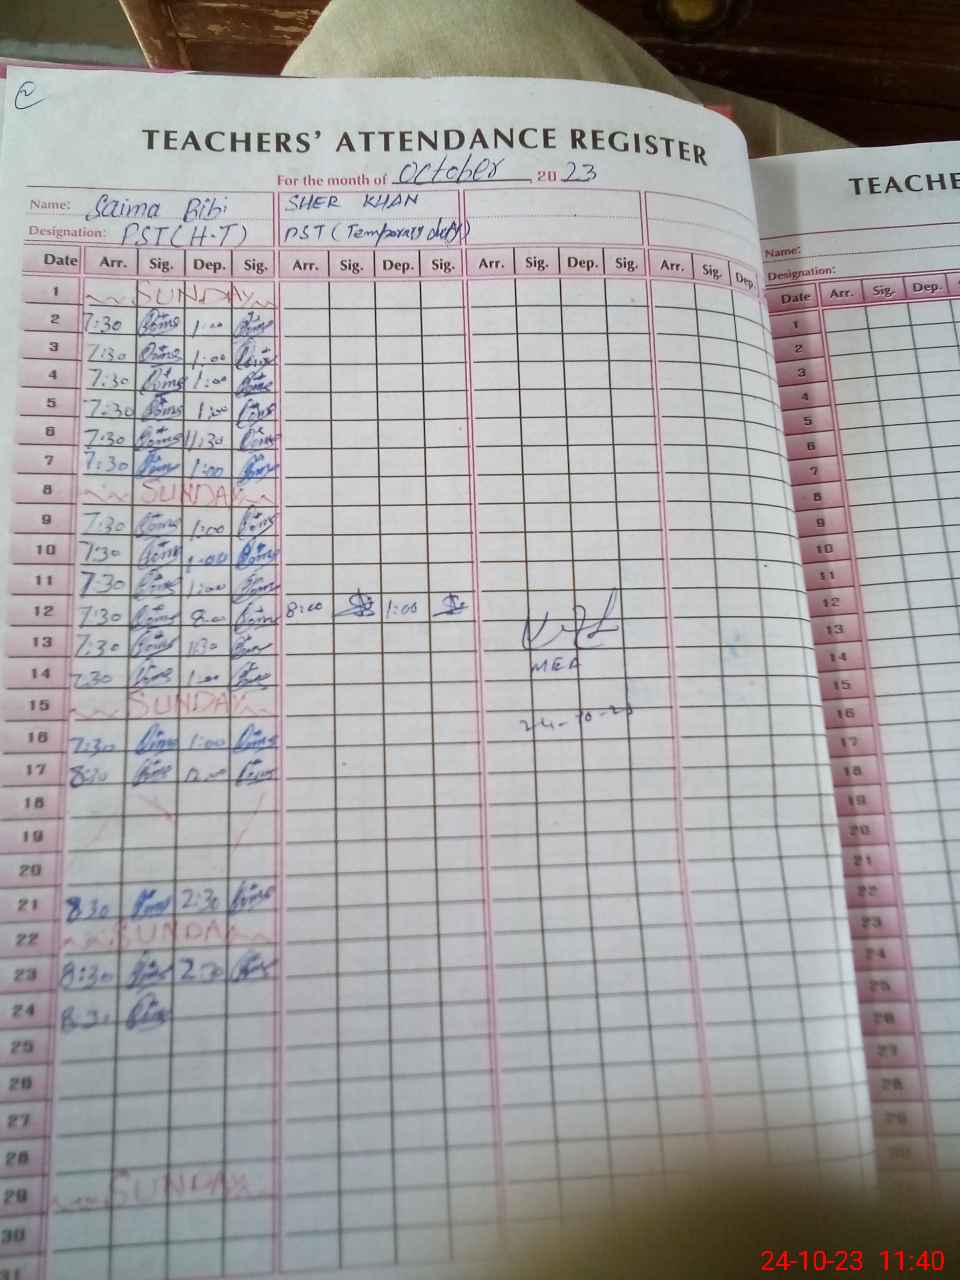 2
TEACHERS' ATTENDANCE REGISTER
For the month of October, 2023
Name: Saima Bibi SHER KHAN
Designation: PST (H.T) PST (Temporary duty)
Date Arr. Sig. Dep. Sig. Arr. Sig. Dep. Sig. Arr. Sig. Dep. Sig. Arr. Sig. Dep.
1 SUNDAY
2 7:30 1:00
3 7:30 1:00
4 7:30 1:00
5 7:30 1:00
6 7:30 11:30
7 7:30 1:00
8 SUNDAY
9 7:30 1:00
10 7:30 1:00
11 7:30 1:00
12 7:30 8:00 1:00
13 7:30
14 7:30 1:00
MEA
15 SUNDAY
24-10-23
16 7:30 1:00
17
18
19
20
21 8:30 2:30
22 SUNDAY
23 8:30 2:30
24
25
26
27
28
29 SUNDAY
30
31
TEACHE
Name:
Designation:
Date Arr. Sig. Dep.
1
2
3
4
5
6
7
8
9
10
11
12
13
14
15
16
17
18
19
20
21
22
23
24
25
26
27
28
29
30
24-10-23 11:40